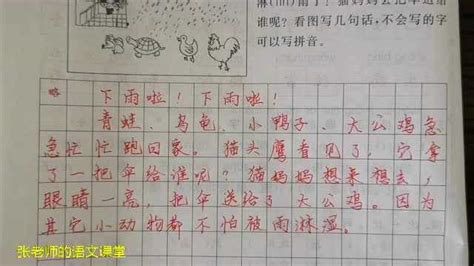 淋(lín)雨了！猫妈妈会把伞送给
谁呢？看图写几句话，不会写的字
可以写拼音。
略 下雨啦！下雨啦！
青蛙、乌龟、小鸭子、大公鸡急
急忙忙跑回家。猫头鹰看见了，它拿
了一把伞给谁呢？猫妈妈想来想去，
眼睛一亮，把伞送给了大公鸡。因为
其它小动物都不怕被雨淋湿。
张老师的语文课堂